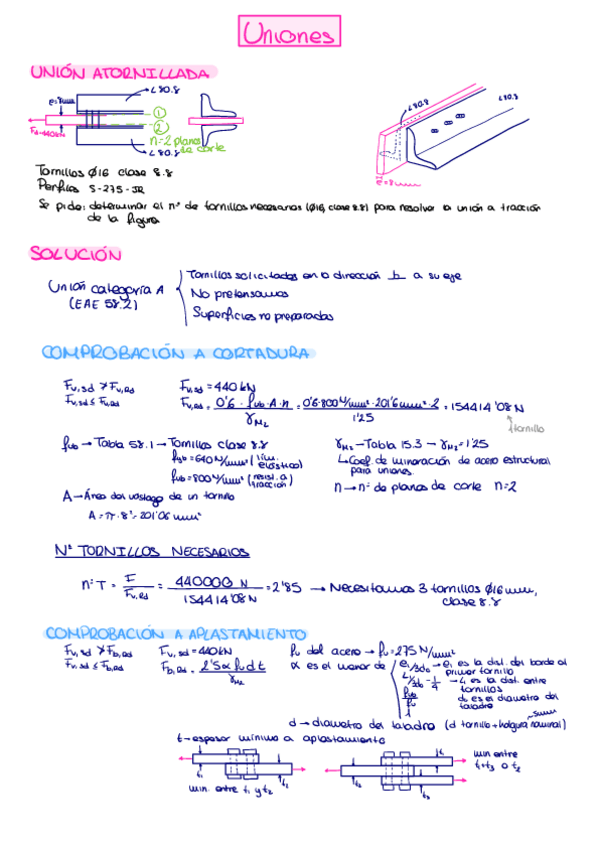 Uniones
UNIÓN ATORNILLADA
e=8mm
L80.8
①
②
n=2 planos de corte
Fd=440kN
L80.8
L80.8
L80.8
e=8mm
Tornillos ϕ16 clase 8.8
Perfiles S-275-JR
Se pide: determinar el nº de tornillos necesarios (ϕ16, clase 8.8) para resolver la unión a tracción
de la figura
SOLUCIÓN
Unión categoría A
(EAE 58.2)
Tornillos solicitados en la dirección ⊥ a su eje
No pretensamos
Superficies no preparadas
COMPROBACIÓN A CORTADURA
Fv,sd > Fv,Rd
Fv,sd ≤ Fv,Rd
Fv,sd = 440 kN
Fv,Rd = 0'6 · fub · A · n / γM2 = 0'6·800 N/mm² · 201'6 mm² · 2 / 1'25 = 154414'08 N
1 tornillo
fub → Tabla 58.1 → Tornillos clase 8.8
fyb = 640 N/mm² (lím. elástico)
fub = 800 N/mm² (resist. a tracción)
A → Área del vástago de un tornillo
A = π · 8² = 201'06 mm²
γM2 → Tabla 15.3 → γM2 = 1'25
↳ Coef. de minoración de acero estructural
para uniones.
n → nº de planos de corte n=2
Nº TORNILLOS NECESARIOS
nºT = F / Fv,Rd = 440000 N / 154414'08 N = 2'85 → Necesitamos 3 tornillos ϕ16mm,
clase 8.8
COMPROBACIÓN A APLASTAMIENTO
Fv,sd > Fb,Rd
Fv,sd ≤ Fb,Rd
Fv,sd = 440kN
Fb,Rd = 2'5 α fu d t / γM2
fu del acero → fu = 275 N/mm²
α es el menor de
e1/3d0 → e1 es la dist. del borde al
primer tornillo
L/3d0 - 1/4 → L es la dist. entre
tornillos
fub/fu
d0 es el diámetro del
taladro
1
d → diámetro del taladro (d tornillo + holgura nominal)
t → espesor mínimo a aplastamiento
t1
t2
min. entre t1 y t2
t1
t2
t3
min entre
t1+t3 o t2